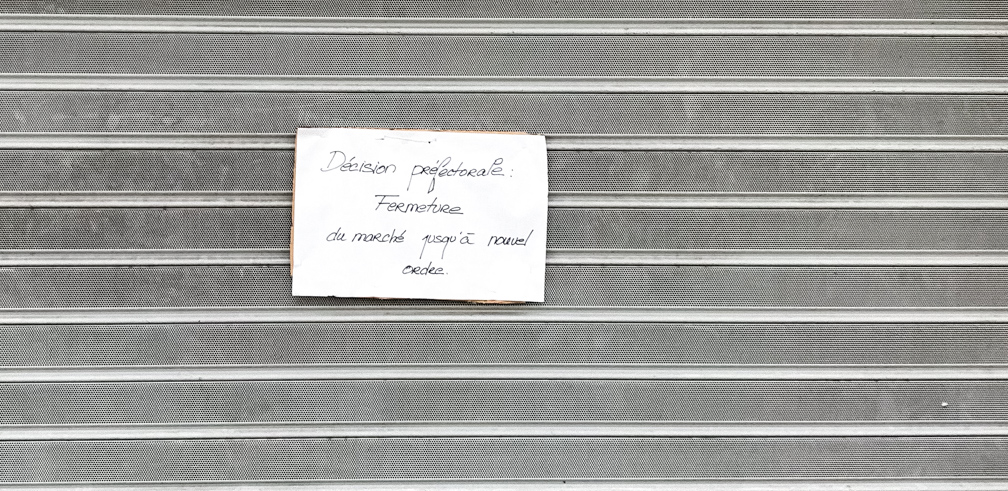 Décision préfectorale :
Fermeture
du marché jusqu'à nouvel
ordre.